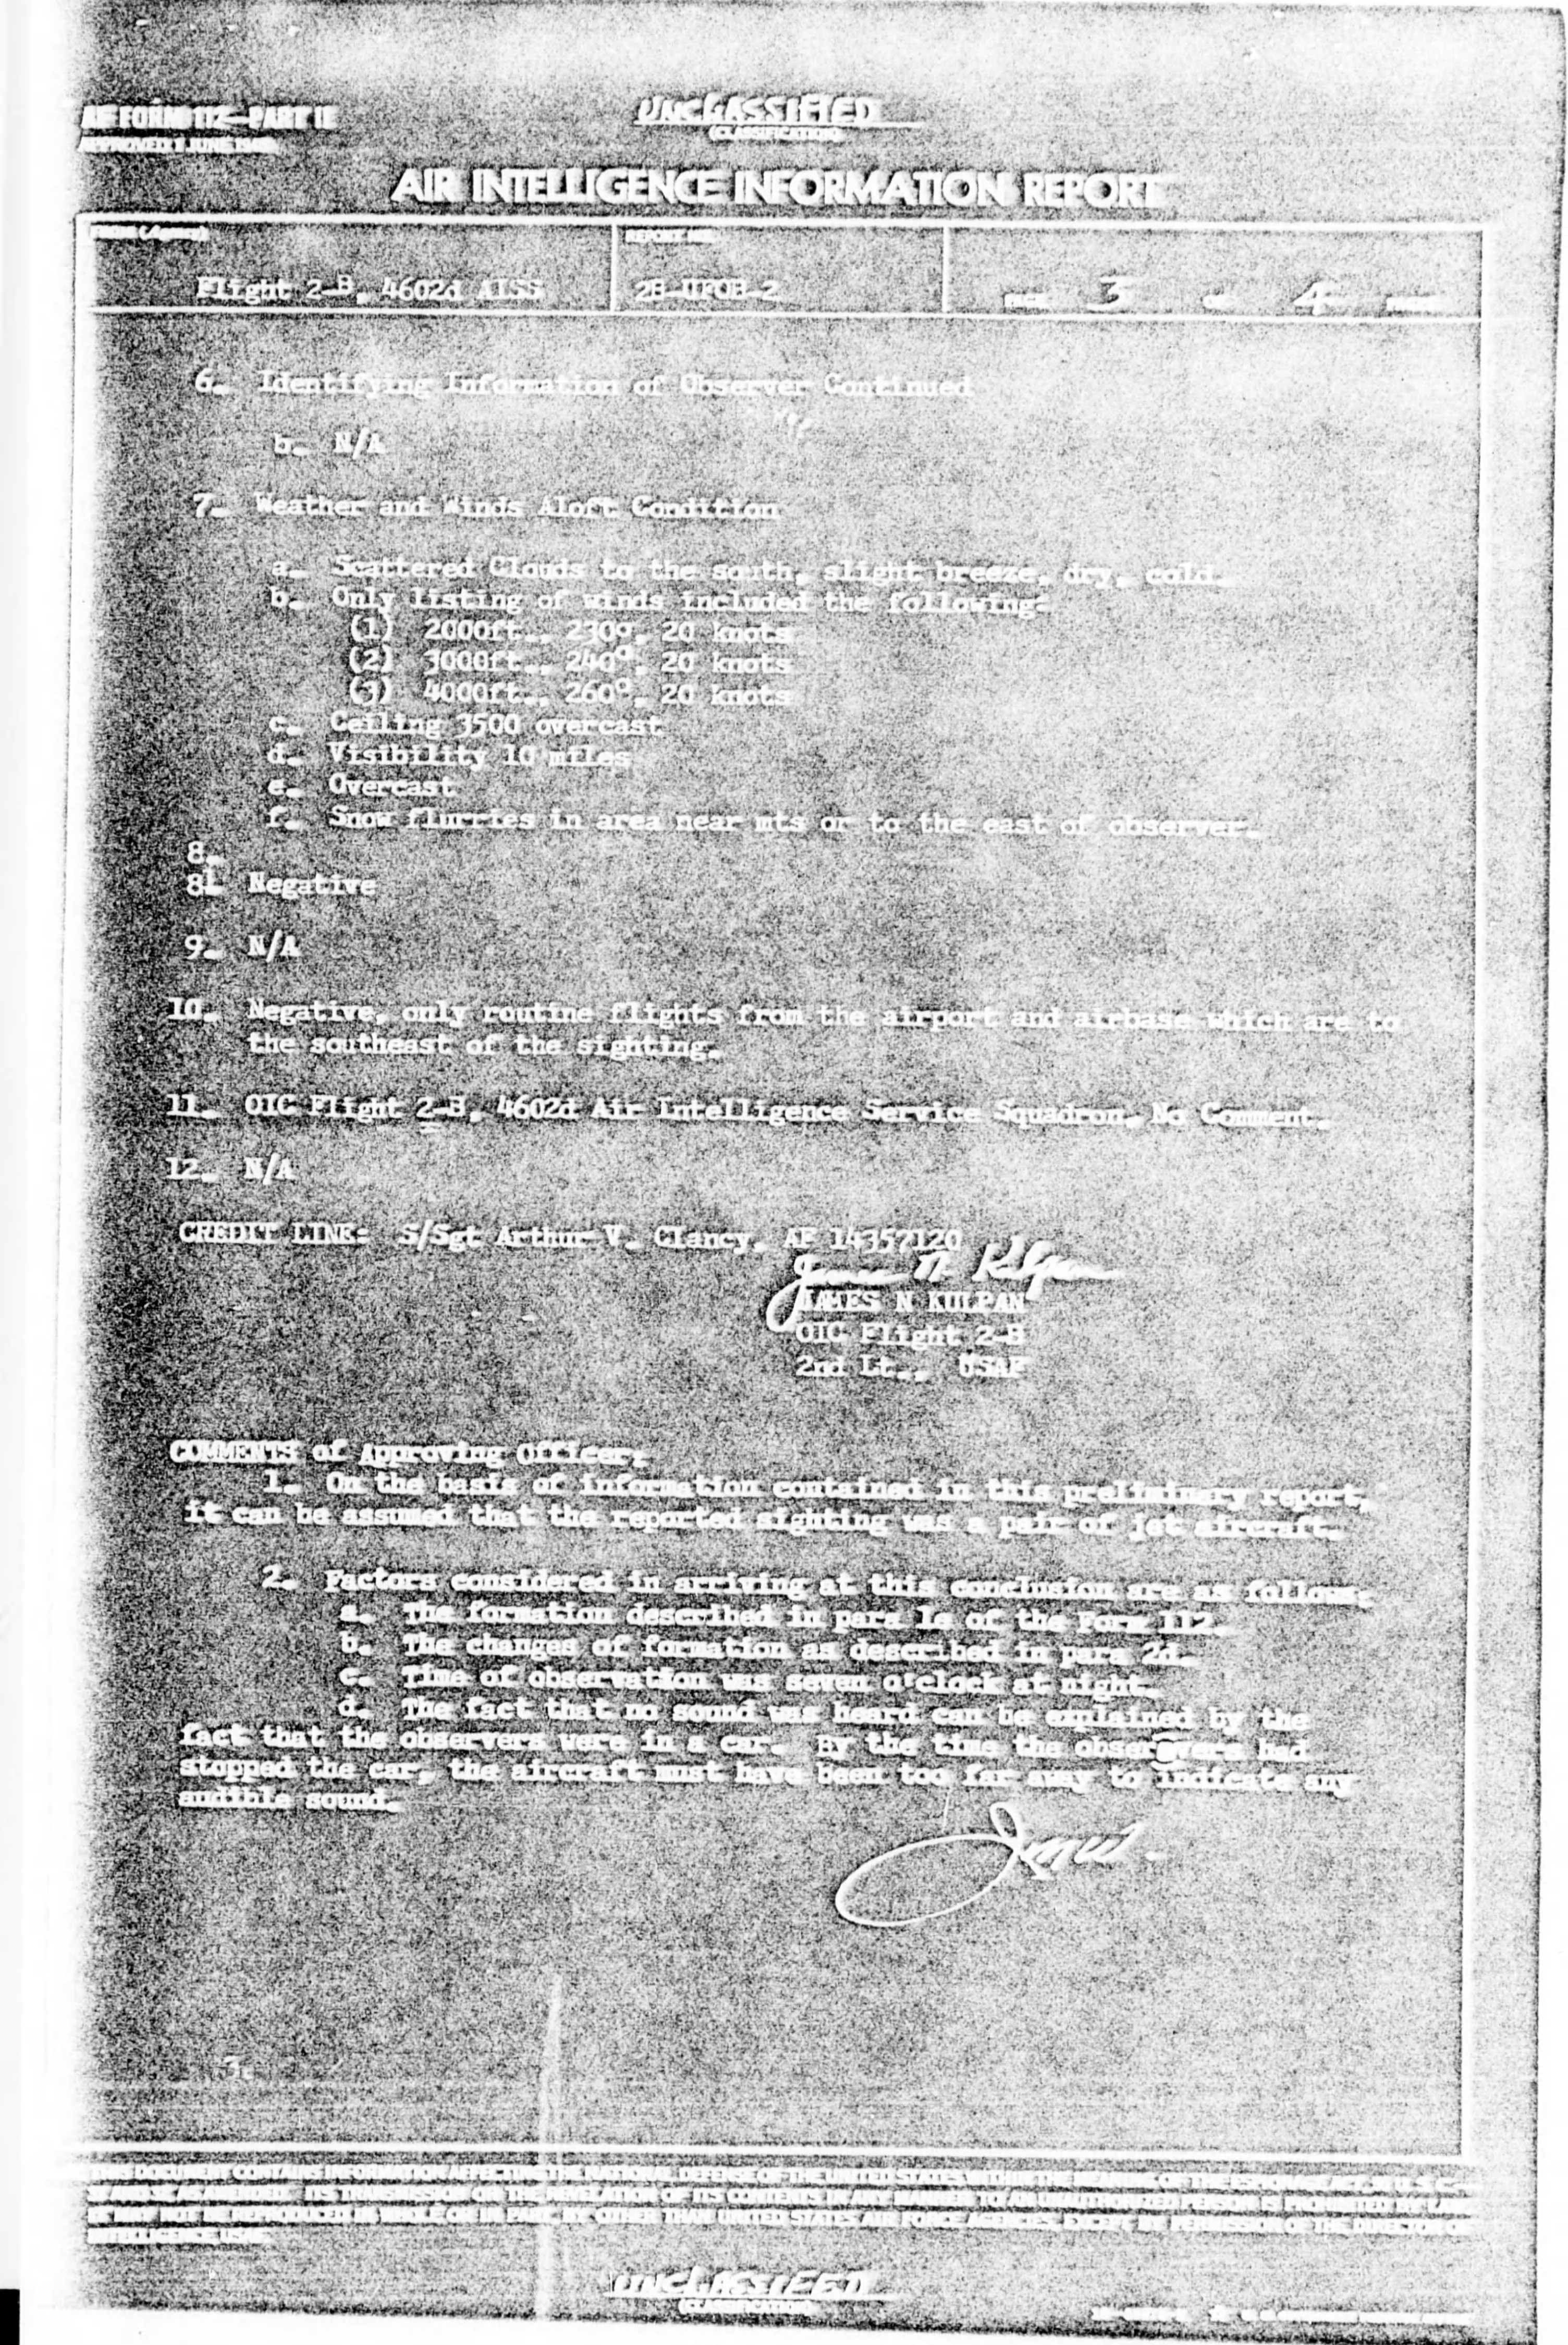 AF FORM 112—PART II
APPROVED 1 JUNE 1948
UNCLASSIFIED
(CLASSIFICATION)
AIR INTELLIGENCE INFORMATION REPORT
FROM (Agency)
REPORT NO.
Flight 2-B, 4602d AISS
2B-UFOB-2
PAGE 3 OF 4 PAGES
6. Identifying Information of Observer Continued
b. N/A
7. Weather and Winds Aloft Condition
a. Scattered Clouds to the south, slight breeze, dry, cold.
b. Only listing of winds included the following:
(1) 2000ft., 230°, 20 knots
(2) 3000ft., 240°, 20 knots
(3) 4000ft., 260°, 20 knots
c. Ceiling 3500 overcast
d. Visibility 10 miles
e. Overcast
f. Snow flurries in area near mts or to the east of observer.
8.
8. Negative
9. N/A
10. Negative, only routine flights from the airport and airbase which are to
the southeast of the sighting.
11. OIC Flight 2-B, 4602d Air Intelligence Service Squadron, No Comment.
12. N/A
CREDIT LINE: S/Sgt Arthur V. Clancy, AF 14357120
JAMES N KULPAN
OIC Flight 2-B
2nd Lt., USAF
COMMENTS of Approving Officer:
1. On the basis of information contained in this preliminary report,
it can be assumed that the reported sighting was a pair of jet aircraft.
2. Factors considered in arriving at this conclusion are as follows:
a. The formation described in para 1e of the Form 112.
b. The changes of formation as described in para 2d.
c. Time of observation was seven o'clock at night.
d. The fact that no sound was heard can be explained by the
fact that the observers were in a car. By the time the observers had
stopped the car, the aircraft must have been too far away to indicate any
audible sound.
3.
THIS DOCUMENT CONTAINS INFORMATION AFFECTING THE NATIONAL DEFENSE OF THE UNITED STATES WITHIN THE MEANING OF THE ESPIONAGE ACT,
AS AMENDED. ITS TRANSMISSION OR THE REVELATION OF ITS CONTENTS IN ANY MANNER TO AN UNAUTHORIZED PERSON IS PROHIBITED BY LAW.
IT MAY NOT BE REPRODUCED IN WHOLE OR IN PART, BY OTHER THAN UNITED STATES AIR FORCE AGENCIES, EXCEPT BY PERMISSION OF THE DIRECTOR OF
INTELLIGENCE, USAF.
UNCLASSIFIED
(CLASSIFICATION)